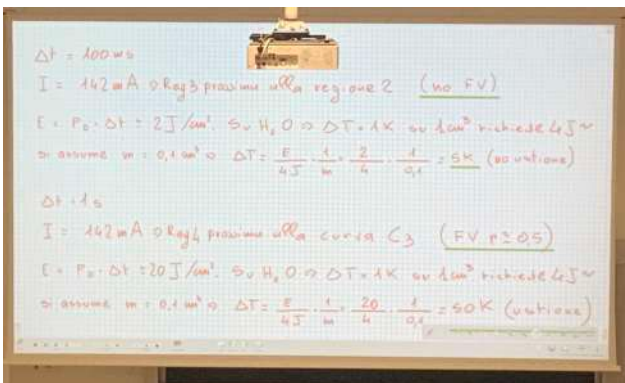 Δt = 100ms
I = 142mA → Reg3 prossimo alla regione 2 (no FV)
E = P₀·Δt = 2J/cm². Su H₂O ⇒ ΔT=1K su 1cm³ richiede 4J~
si assume m = 0,1 cm³ ⇒ ΔT = E/4J · 1/m = 2/4 · 1/0,1 = 5K (no ustione)
Δt = 1s
I = 142mA → Reg4 prossimo alla curva C3 (FV p≅0,5)
E = P₀·Δt = 20J/cm². Su H₂O ⇒ ΔT=1K su 1cm³ richiede 4J~
si assume m = 0,1 cm³ ⇒ ΔT = E/4J · 1/m = 20/4 · 1/0,1 = 50K (ustione)